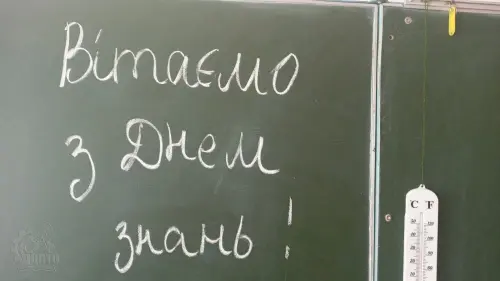 Вітаємо
з Днем
знань!
C F